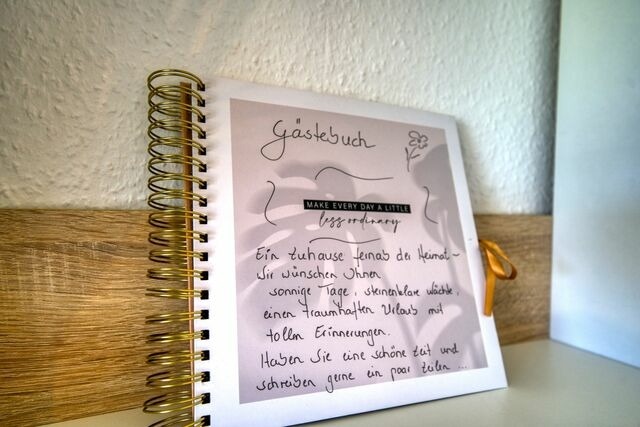 Gästebuch
MAKE EVERY DAY A LITTLE
less ordinary
Ein zuhause fernab der Heimat ~
Wir wünschen Ihnen
sonnige Tage, sternenklare Nächte,
einen traumhaften Urlaub mit
tollen Erinnerungen.
Haben Sie eine schöne Zeit und
schreiben gerne ein paar Zeilen ...